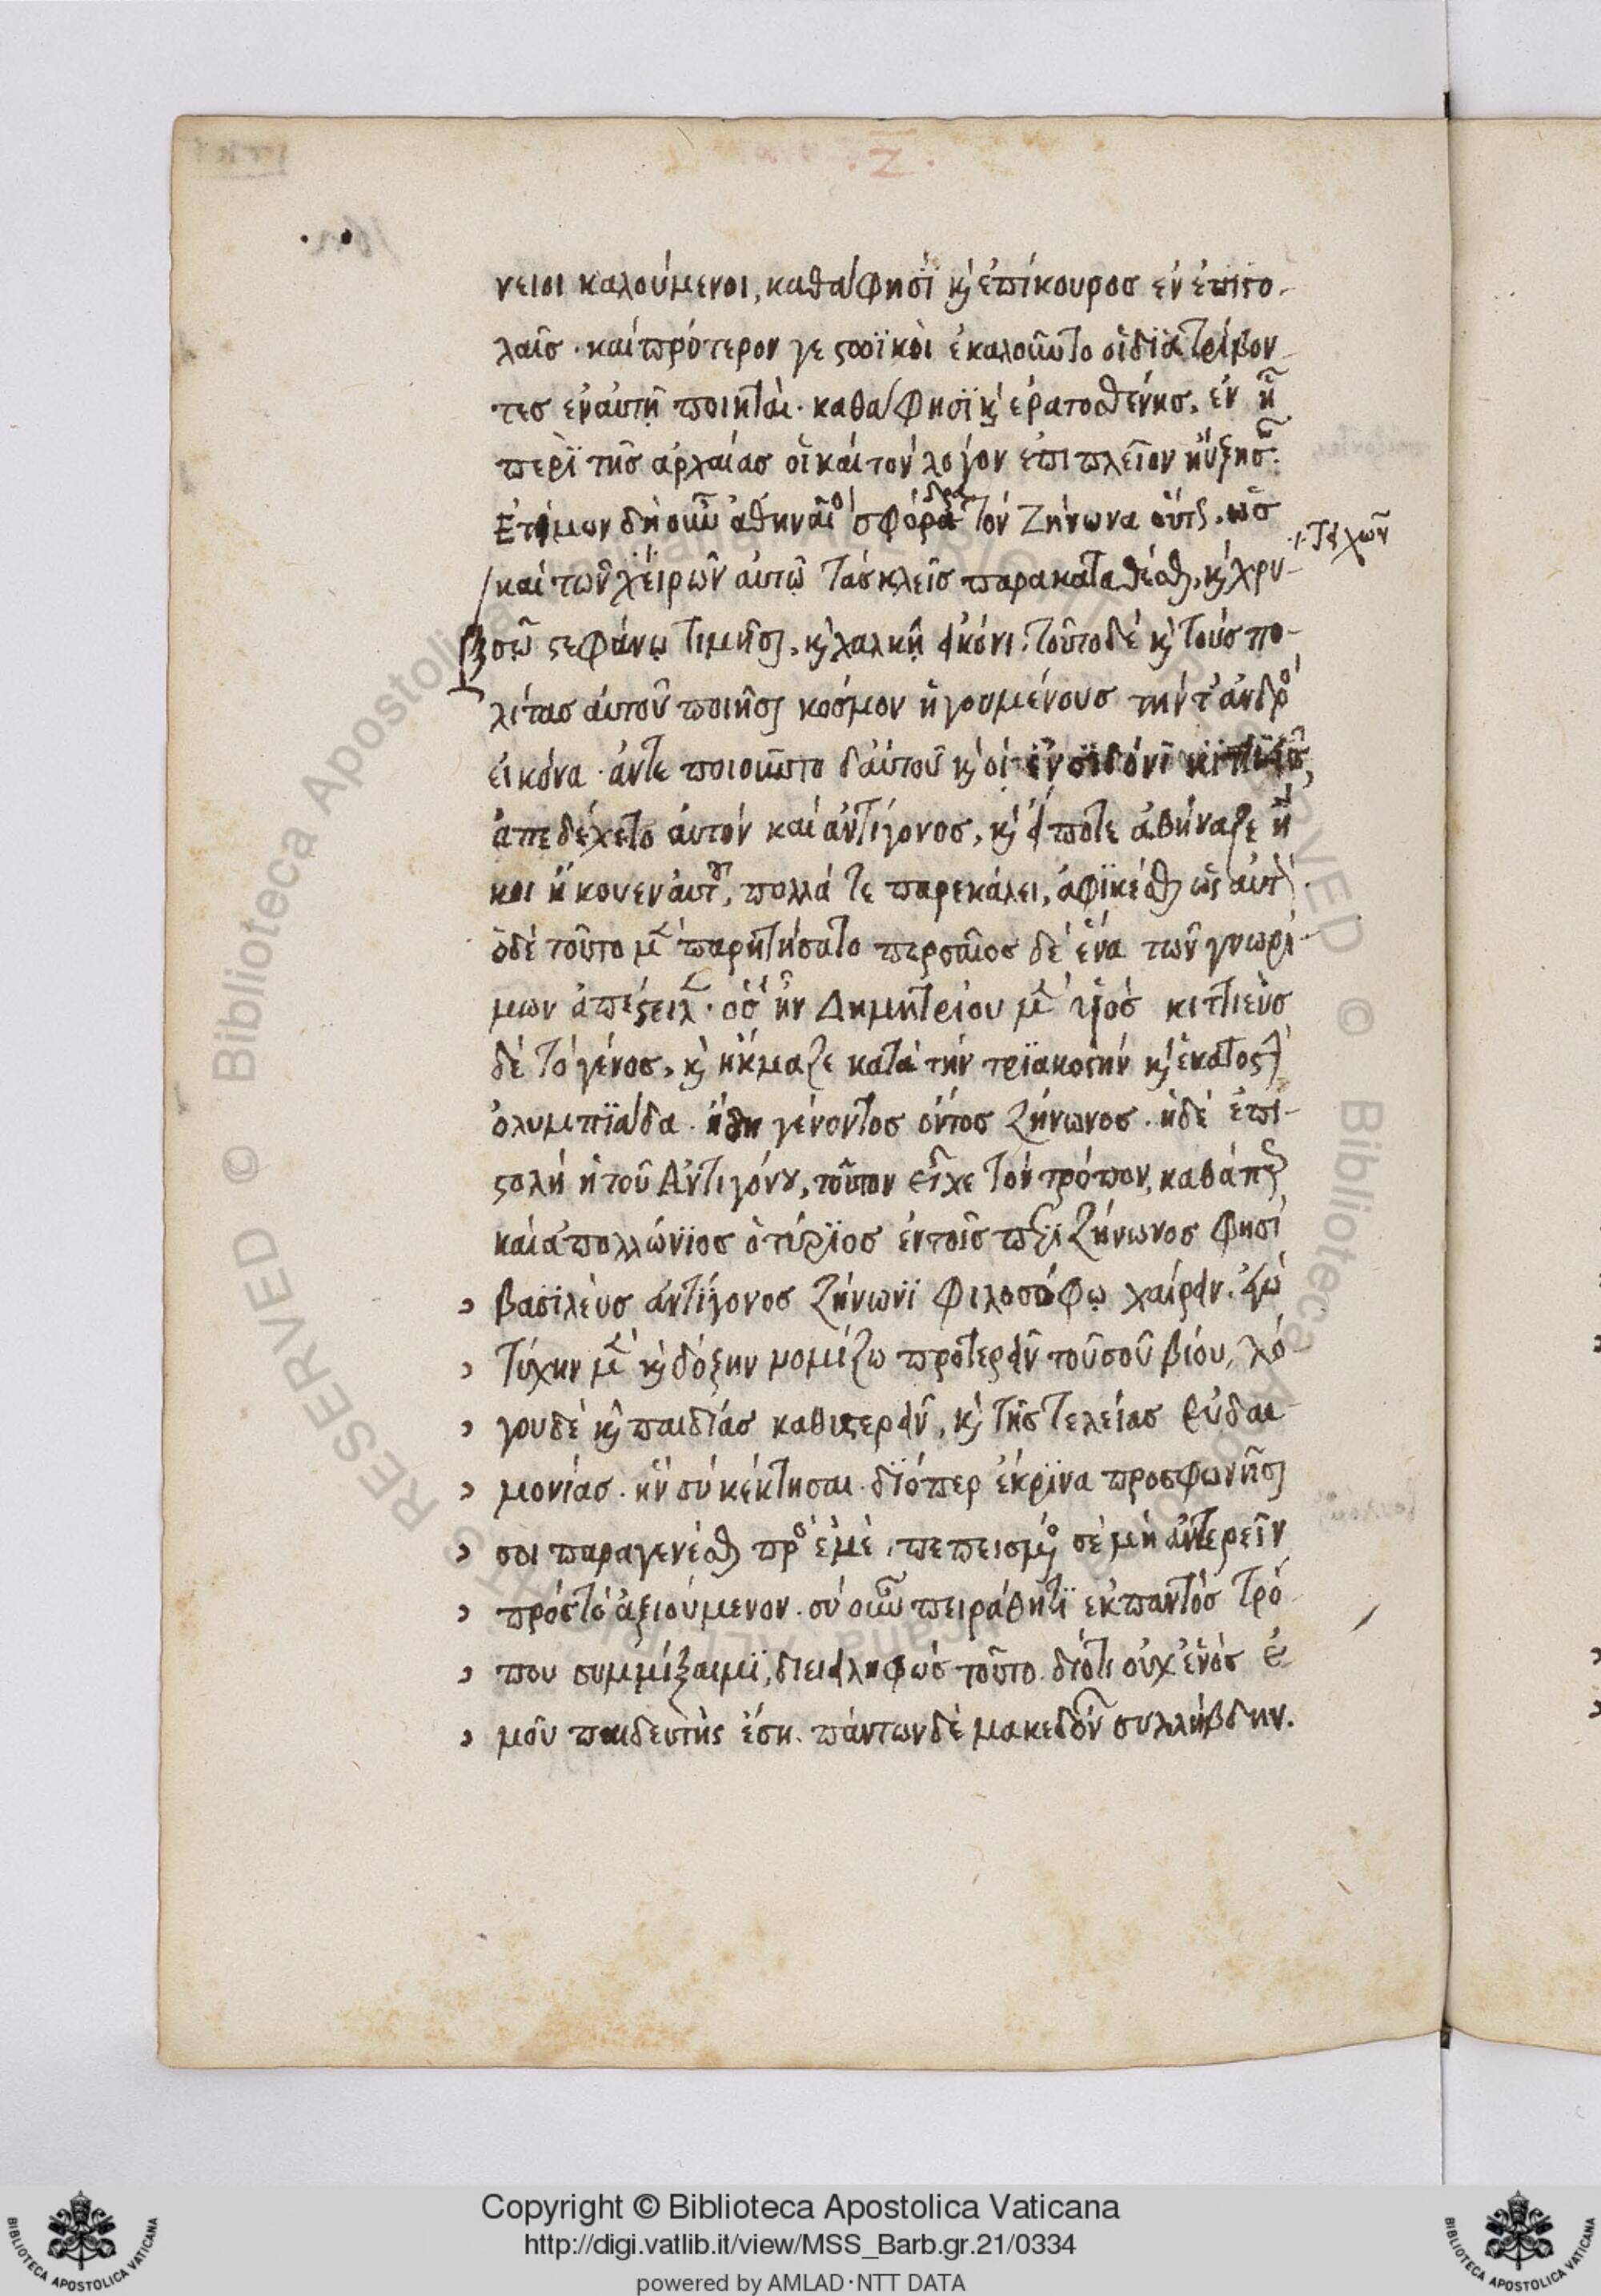 ·Ζ·
νειοι καλούμενοι, καθά φησϊ κ̀ ἐπίκουροσ ἐν ἐπιϛο-
λαῖσ · καὶ πρότερον γε ϛοϊκοὶ ἐκαλοῦντο οἱ διὰτρίβον-
τεσ ἐν αὐτῆ ποιηταὶ · καθά φησϊ κ̀ ἐρατοσθένησ, ἐν η̄
περὶ τῆσ ἀρχαίασ οἳ καὶ τὸν λόγον ἐπιπλεῖον ηὔξησαν:
Ἐτίμων δὴ οὖν ἀθηναῖοι σφόδρα τὸν Ζήνωνα οὕτως, ὡσ
καὶ τῶν χειρῶν αὐτῷ τὰσ κλεῖσ παρακαταθέσθαι, κ̀ χρυ-
τειχῶν
σῷ ϛεφάνῳ τιμῆσαι, κ̀ χαλκῇ εἰκόνι · τοῦτο δὲ κ̀ τοὺσ πο-
λίτασ αὐτοῦ ποιῆσαι κόσμον ἡγουμένουσ τὴν τ' ἀνδρὸς
εἰκόνα · ἀντεποιοῦντο δ' αὐτοῦ κ̀ οἱ ἐν σϊδόνϊ κϊτιεῖς,
ἀπεδέχετο αὐτὸν καὶ ἀντίγονοσ, κ̀ εἴ ποτε ἀθήναζε ἥ
κοι ἤκουεν αὐτοῦ, πολλά τε παρεκάλει, ἀφϊκέσθαι ὡς αὐτὸν ·
ὁ δὲ τοῦτο μὲν παρητήσατο περσαῖοσ δὲ ἕνα τῶν γνωρί-
μων ἀπέϛειλεν · ὃσ ἦν Δημητρίου μὲν υἱόσ κιτιεὺσ
δὲ τὸ γένοσ, κ̀ ἤκμαζε κατὰ τὴν τρϊακοϛὴν κ̀ ἑκατοϛὴν
ὀλυμπϊάδα · ἤδη γέροντοσ ὄντοσ Ζήνωνοσ · ἡ δὲ ἐπι-
ϛολὴ ἡ τοῦ Ἀντιγόνου, τοῦτον εἶχε τὸν τρόπον, καθάπερ
καὶ ἀπολλώνϊοσ ὁ τύρϊοσ ἐν τοῖσ περὶ Ζήνωνοσ φησί
› βασϊλεὺσ ἀντίγονοσ Ζήνωνϊ φιλοσόφῳ χαίρειν · ἐγὼ
› τύχην μὲν κ̀ δόξην νομίζω προτερεῖν τοῦ σοῦ βίου, λό
› γου δὲ κ̀ παιδίασ καθυϛερεῖν, κ̀ τῆσ τελείασ εὐδαι-
› μονίασ · ἣν σὺ κέκτησαι · δϊόπερ ἔκρϊνα προσφωνῆσαι
› σοι παραγενέσθαι πρὸς ἐμὲ · πεπεισμένος σὲ μὴ ἀντερεῖν
› πρὸσ τὸ ἀξιούμενον · σὺ οὖν πειράθητϊ ἐκ παντὸσ τρό-
› που συμμίξαι μϊ, διειληφὼσ τοῦτο διότι οὐχ ἑνὸσ ἐ-
› μοῦ παιδευτὴς ἔση · πάντων δὲ μακεδόνων συλλήβδην.
Copyright © Biblioteca Apostolica Vaticana
http://digi.vatlib.it/view/MSS_Barb.gr.21/0334
powered by AMLAD·NTT DATA